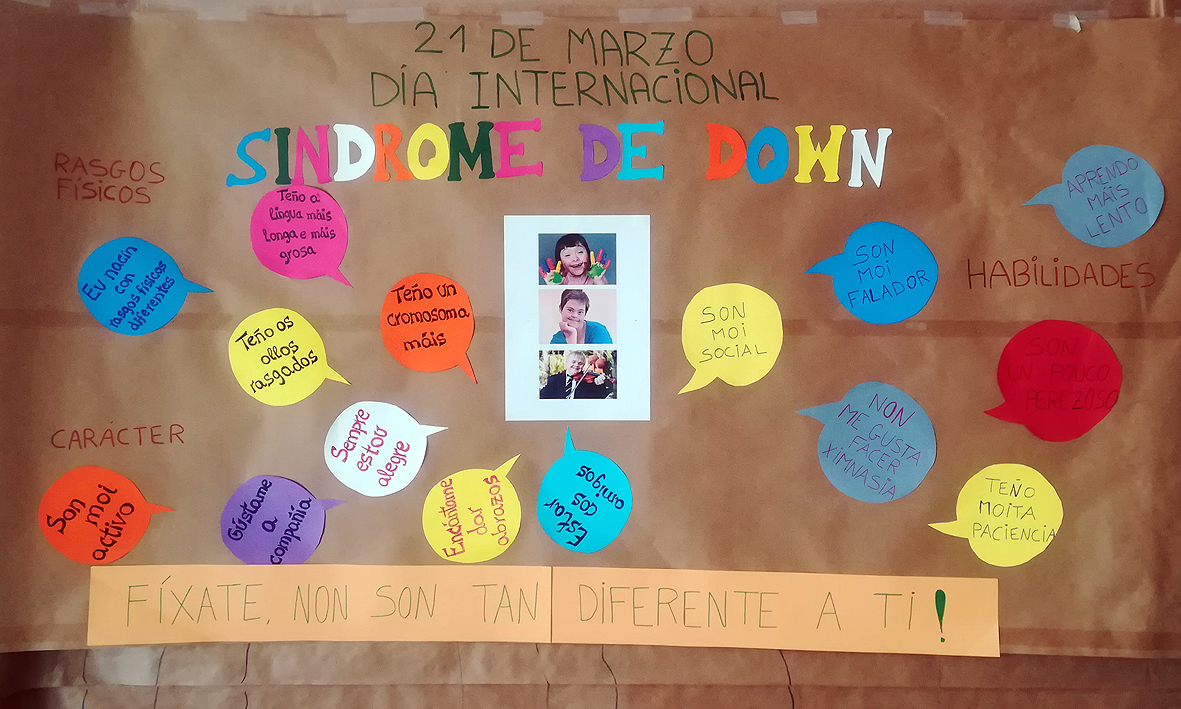 21 DE MARZO
DÍA INTERNACIONAL
SINDROME DE DOWN
RASGOS
FÍSICOS
Eu nacín
con
rasgos físicos
diferentes
Teño a
lingua máis
longa e máis
grosa
Teño os
ollos
rasgados
Teño un
cromosoma
máis
CARÁCTER
Son
moi
activo
Gústame
a
compañía
Sempre
estou
alegre
Encántame
dar
abrazos
Estar
cos
amigos
HABILIDADES
SON
MOI
SOCIAL
SON
MOI
FALADOR
APRENDO
MÁIS
LENTO
SON
UN POUCO
PEREZOSO
NON
ME GUSTA
FACER
XIMNASIA
TEÑO
MOITA
PACIENCIA
FÍXATE, NON SON TAN DIFERENTE A TI!